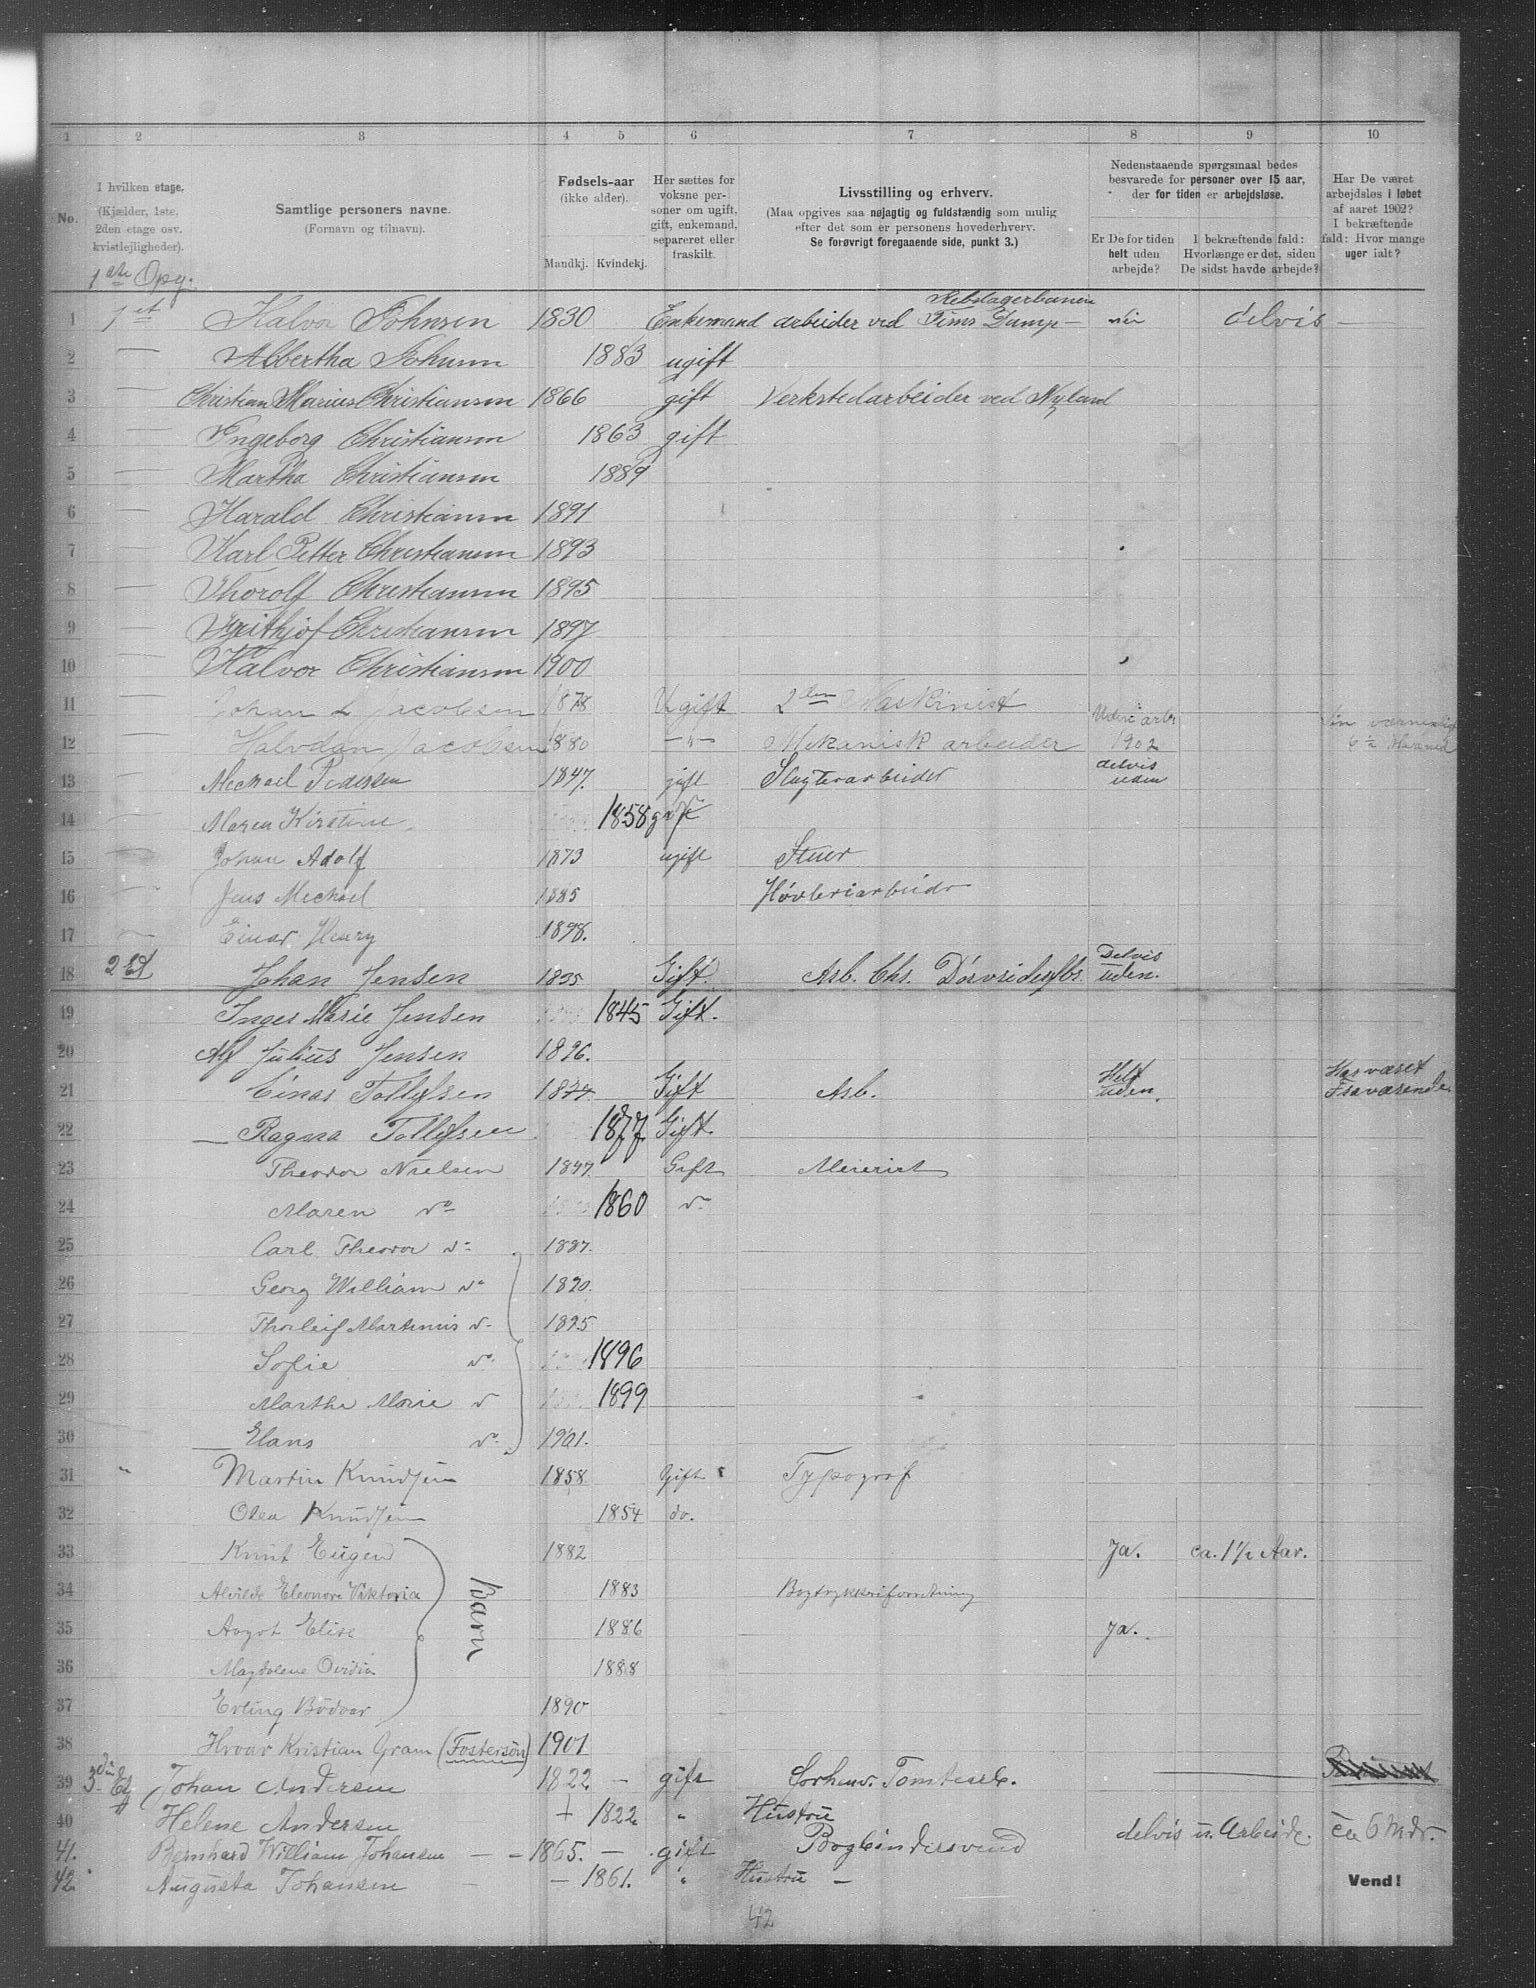 1 2 3 4 5 6 7 8 9 10
No.
I hvilken etage.
(Kjælder, 1ste,
2den etage osv.
kvistlejligheder).
Samtlige personers navne.
(Fornavn og tilnavn).
Fødsels-aar
(ikke alder).
Mandkj. Kvindekj.
Her sættes for
voksne per-
soner om ugift,
gift, enkemand,
separeret eller
fraskilt.
Livsstilling og erhverv.
(Maa opgives saa nøjagtig og fuldstændig som mulig
efter det som er personens hovederhverv.
Se forøvrigt foregaaende side, punkt 3.)
Nedenstaaende spørgsmaal bedes
besvarede for personer over 15 aar,
der for tiden er arbejdsløse.
Er De for tiden
helt uden
arbejde?
I bekræftende fald:
Hvorlænge er det, siden
De sidst havde arbejde?
Har De været
arbejdsløs i løbet
af aaret 1902?
I bekræftende
fald: Hvor mange
uger ialt?
1ste Opg.
1 1 et Halvor Johnsen 1830 Enkemand arbeider ved Rebslagerbanen nei delvis —
2 — Albertha Johnsen 1883 ugift
3 — Christian Marius Christiansen 1866 gift Verkstedarbeider ved Nyland
4 — Ingeborg Christiansen 1863 gift
5 — Martha Christiansen 1889
6 — Harald Christiansen 1891
7 — Karl Petter Christiansen 1893
8 — Thorolf Christiansen 1895
9 — Frithjof Christiansen 1897
10 — Halvor Christiansen 1900
11 — Johan L Jacobsen 1878 Ugift 2den Maskinist
12 — Halvdan Jacobsen 1880 —"— Mekanisk arbeider 1902
13 — Mechael Pedersen 1847. gift Slagterarbeider delvis uden
14 — Maren Kirstine 1858 gift
15 — Johan Adolf 1873 ugift Stuer
16 — Jens Mechael 1885 Høvleriarbeider
17 — Einar Henry 1898.
18 2 Et Johan Jensen 1835 Gift. Arb. Chs. Delvis uden.
19 Inger Marie Jensen 1845 Gift.
20 Alf Julius Jensen 1896.
21 Einar Tollefsen 1877. Gift Arb. Helt uden. Har været Fraværende
22 — Ragna Tollefsen 1877. Gift.
23 Theodor Nielsen 1847. Gift Meierist
24 Maren do 1860 do
25 Carl Theodor do 1887.
26 Georg William do 1890.
27 Thorleif Martinius do 1895
28 Sofie do 1896
29 Marthe Marie do 1899
30 — Hans do 1901.
31 " Martin Knudsen 1858 Gift Typograf
32 Olea Knudsen 1854 do.
33 Knut Eugen 1882 Ja. ca. 1½ Aar.
34 Alvilde Eleonore Viktoria 1883 Bogtrykkriforretning
35 Aagot Elise 1886 Ja.
36 Magdalene Ovidia 1888
37 Erling Bødvar 1890
Barn
38 Hroar Kristian Gram (Fostersøn) 1901
39 3die Et Johan Andersen 1822 — gift Forhenv. —
40 Helene Andersen + 1822 " Hustru
41. Bernhard William Johansen — — 1865. — gift Bogbindersvend delvis u. Arbeide. ca 6 Mdr.
42. Augusta Johansen — — 1861. " Hustru —
Vend!
42